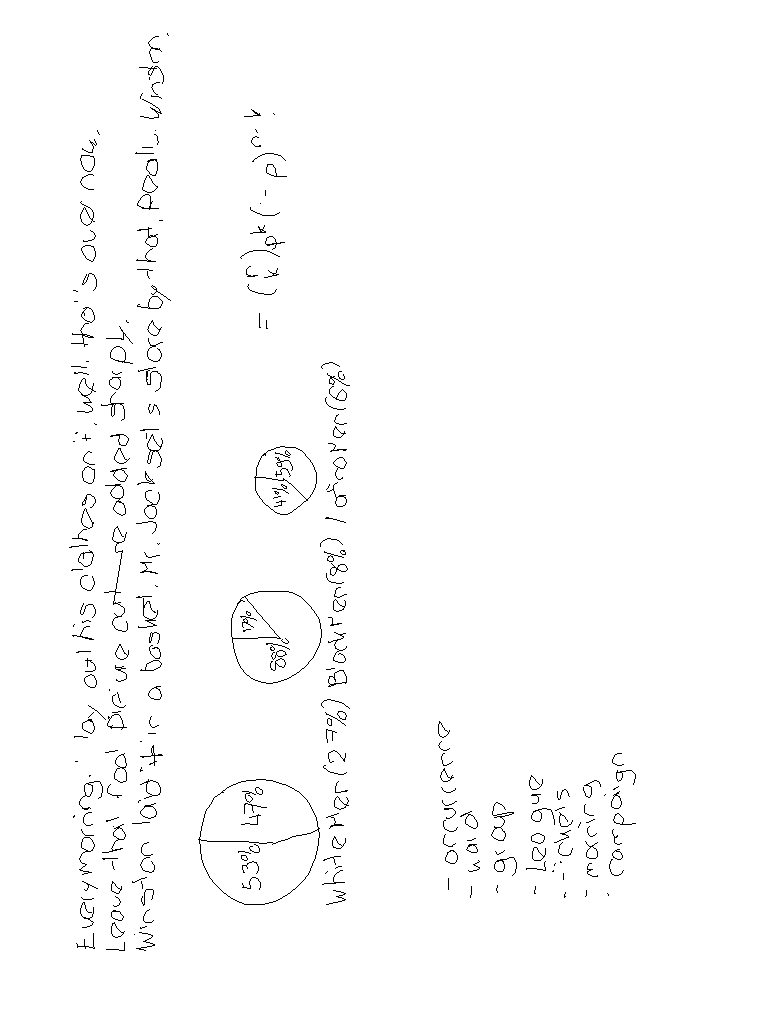 Every morning. I lay out his clothes on it, well, tha's over now.
Leave that fool picture out he added sharply.
Winston laid it in a basket. Mr. Jack sets store by that, Really. Winston.
53% 47%
88% 12%
41% 59%
= (n k) p^k (1 - p)^n-k
White Men (27%) Black Men (8%) Latino Men (6%)
- occurrence
- ward
- group
- League
- morning
- campaign